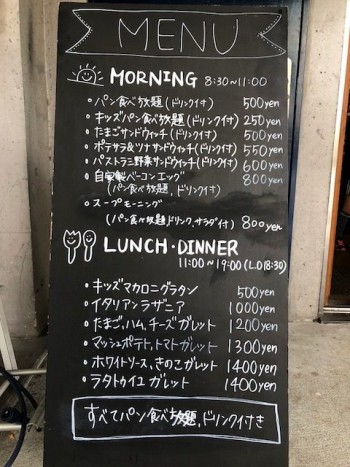 MENU
MORNING 8:30~11:00
・パン食べ放題(ドリンク付) 500yen
・キッズパン食べ放題(ドリンク付) 250yen
・たまごサンドウィッチ(ドリンク付) 500yen
・ポテサラ&ツナサンドウィッチ(ドリンク付) 550yen
・パストラミ野菜サンドウィッチ(ドリンク付) 600yen
・自家製ベーコンエッグ 800yen
(パン食べ放題、ドリンク付)
・スープモーニング
(パン食べ放題ドリンク、サラダ付) 800yen
LUNCH・DINNER
11:00~19:00(L.O18:30)
・キッズマカロニグラタン 500yen
・イタリアンラザニア 1000yen
・たまご、ハム、チーズガレット 1200yen
・マッシュポテト、トマトガレット 1300yen
・ホワイトソース、きのこガレット 1400yen
・ラタトゥイエガレット 1400yen
すべてパン食べ放題、ドリンク付き